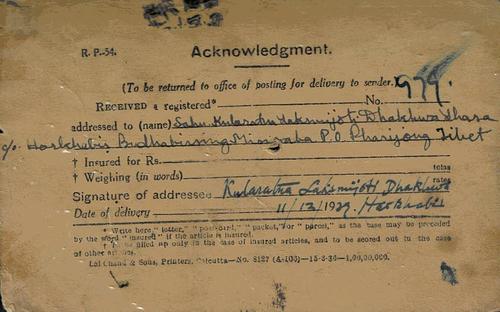 R. P.-54.
Acknowledgment.
(To be returned to office of posting for delivery to sender.)
RECEIVED a registered* No. 979.
addressed to (name) Sahu Kularatna Laksmijoti Dhakhwa Dhara
c/o. Harkhutis Budhabirsing P.O. Pharijong Tibet
† Insured for Rs.
† Weighing (in words) tolas
rates
Signature of addressee Kularatna Laksmijoti Dhakhwa
Date of delivery 11/12/1939.
* Write here "letter," "postcard," "packet," or "parcel," as the case may be preceded
by the word "insured" if the article is insured.
† To be filled up only in the case of insured articles, and to be scored out in the case
of other articles.
Lal Chand & Sons, Printers, Calcutta—No. 8127 (A-103)—15-3-36—1,00,00,000.